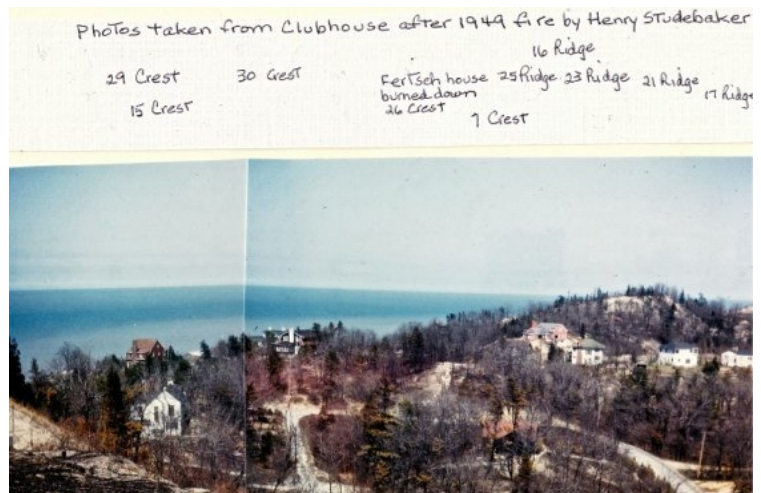 Photos taken from Clubhouse after 1949 fire by Henry Studebaker
16 Ridge
29 Crest 30 Crest Fertsch house 25 Ridge 23 Ridge 21 Ridge 17 Ridge
burned down
15 Crest 26 Crest 7 Crest